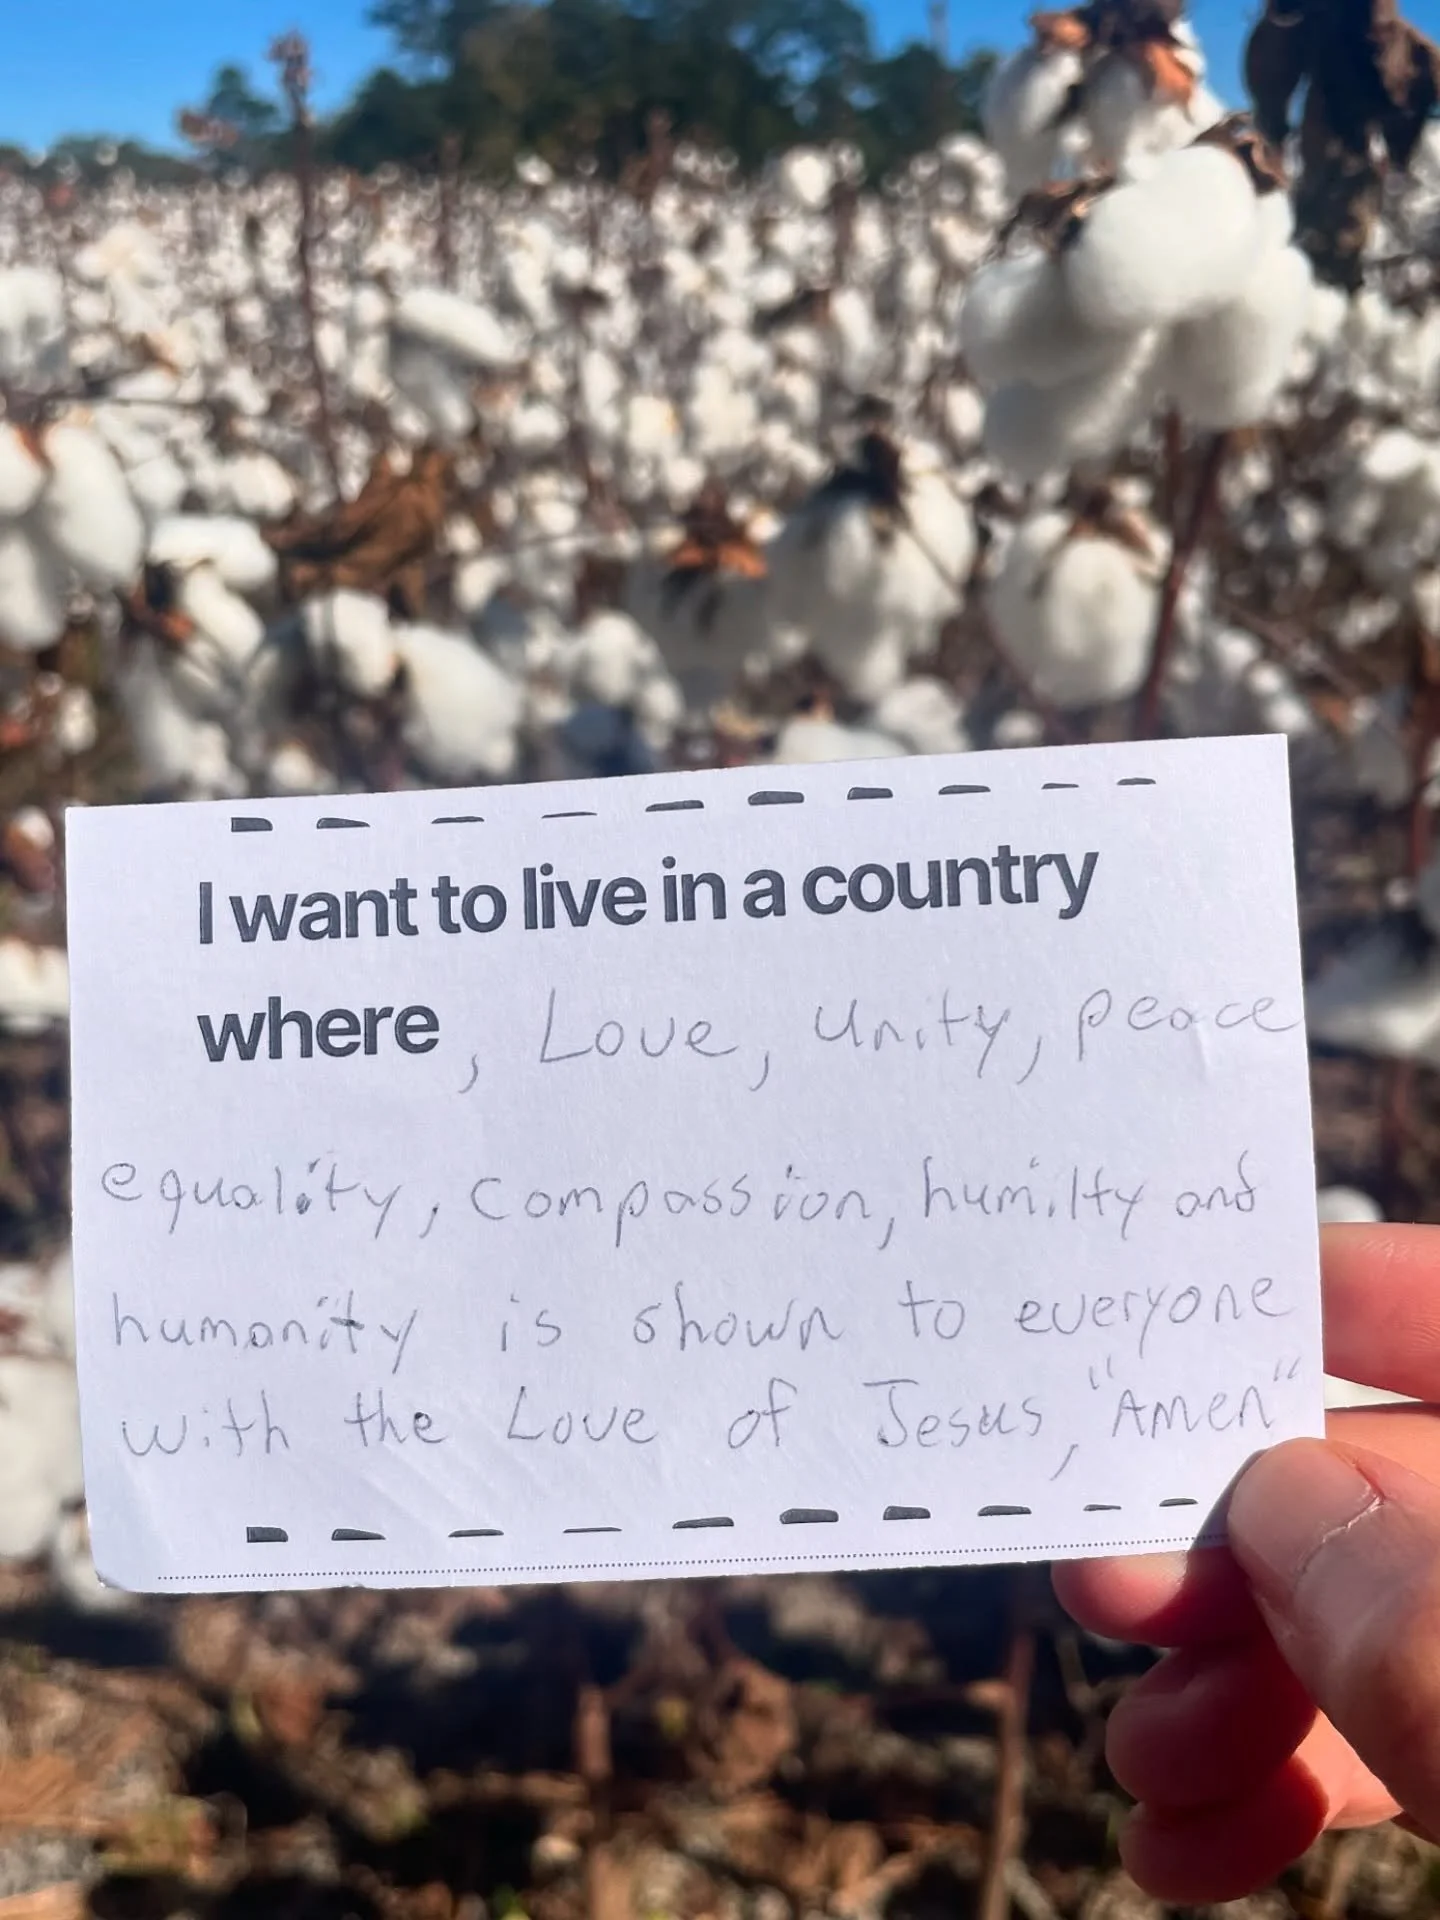 I want to live in a country
where, Love, Unity, peace
equality, compassion, humilty and
humanity is shown to everyone
with the Love of Jesus, "Amen"